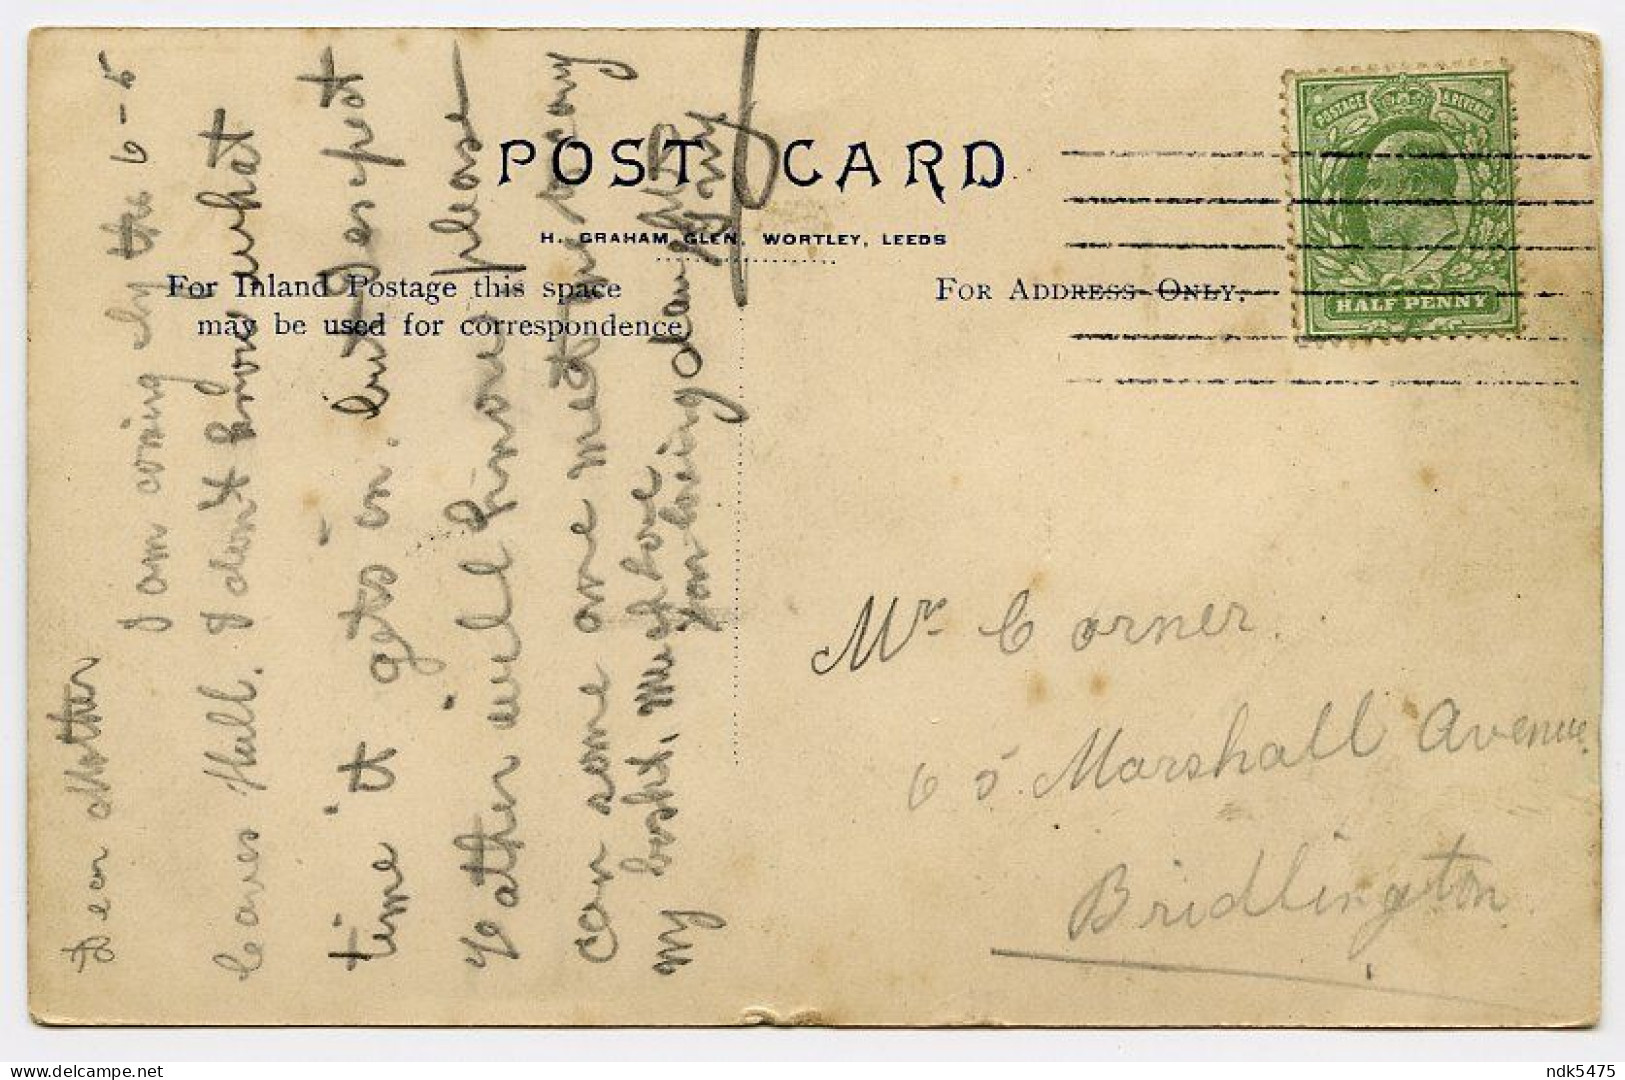 POST CARD
H. GRAHAM GLEN, WORTLEY, LEEDS
For Inland Postage this space
may be used for correspondence
FOR ADDRESS ONLY.
POSTAGE & REVENUE
HALF PENNY
Dear Mother
I am coming by the 6-5
from Hull. I dont know what
time it gets in. but I expect
Father will know, please
can some one meet me to carry
my baskt, Much love
Your loving daughter
Ivy
Mr. Corner.
65. Marshall Avenue.
Bridlington.
ndk5475